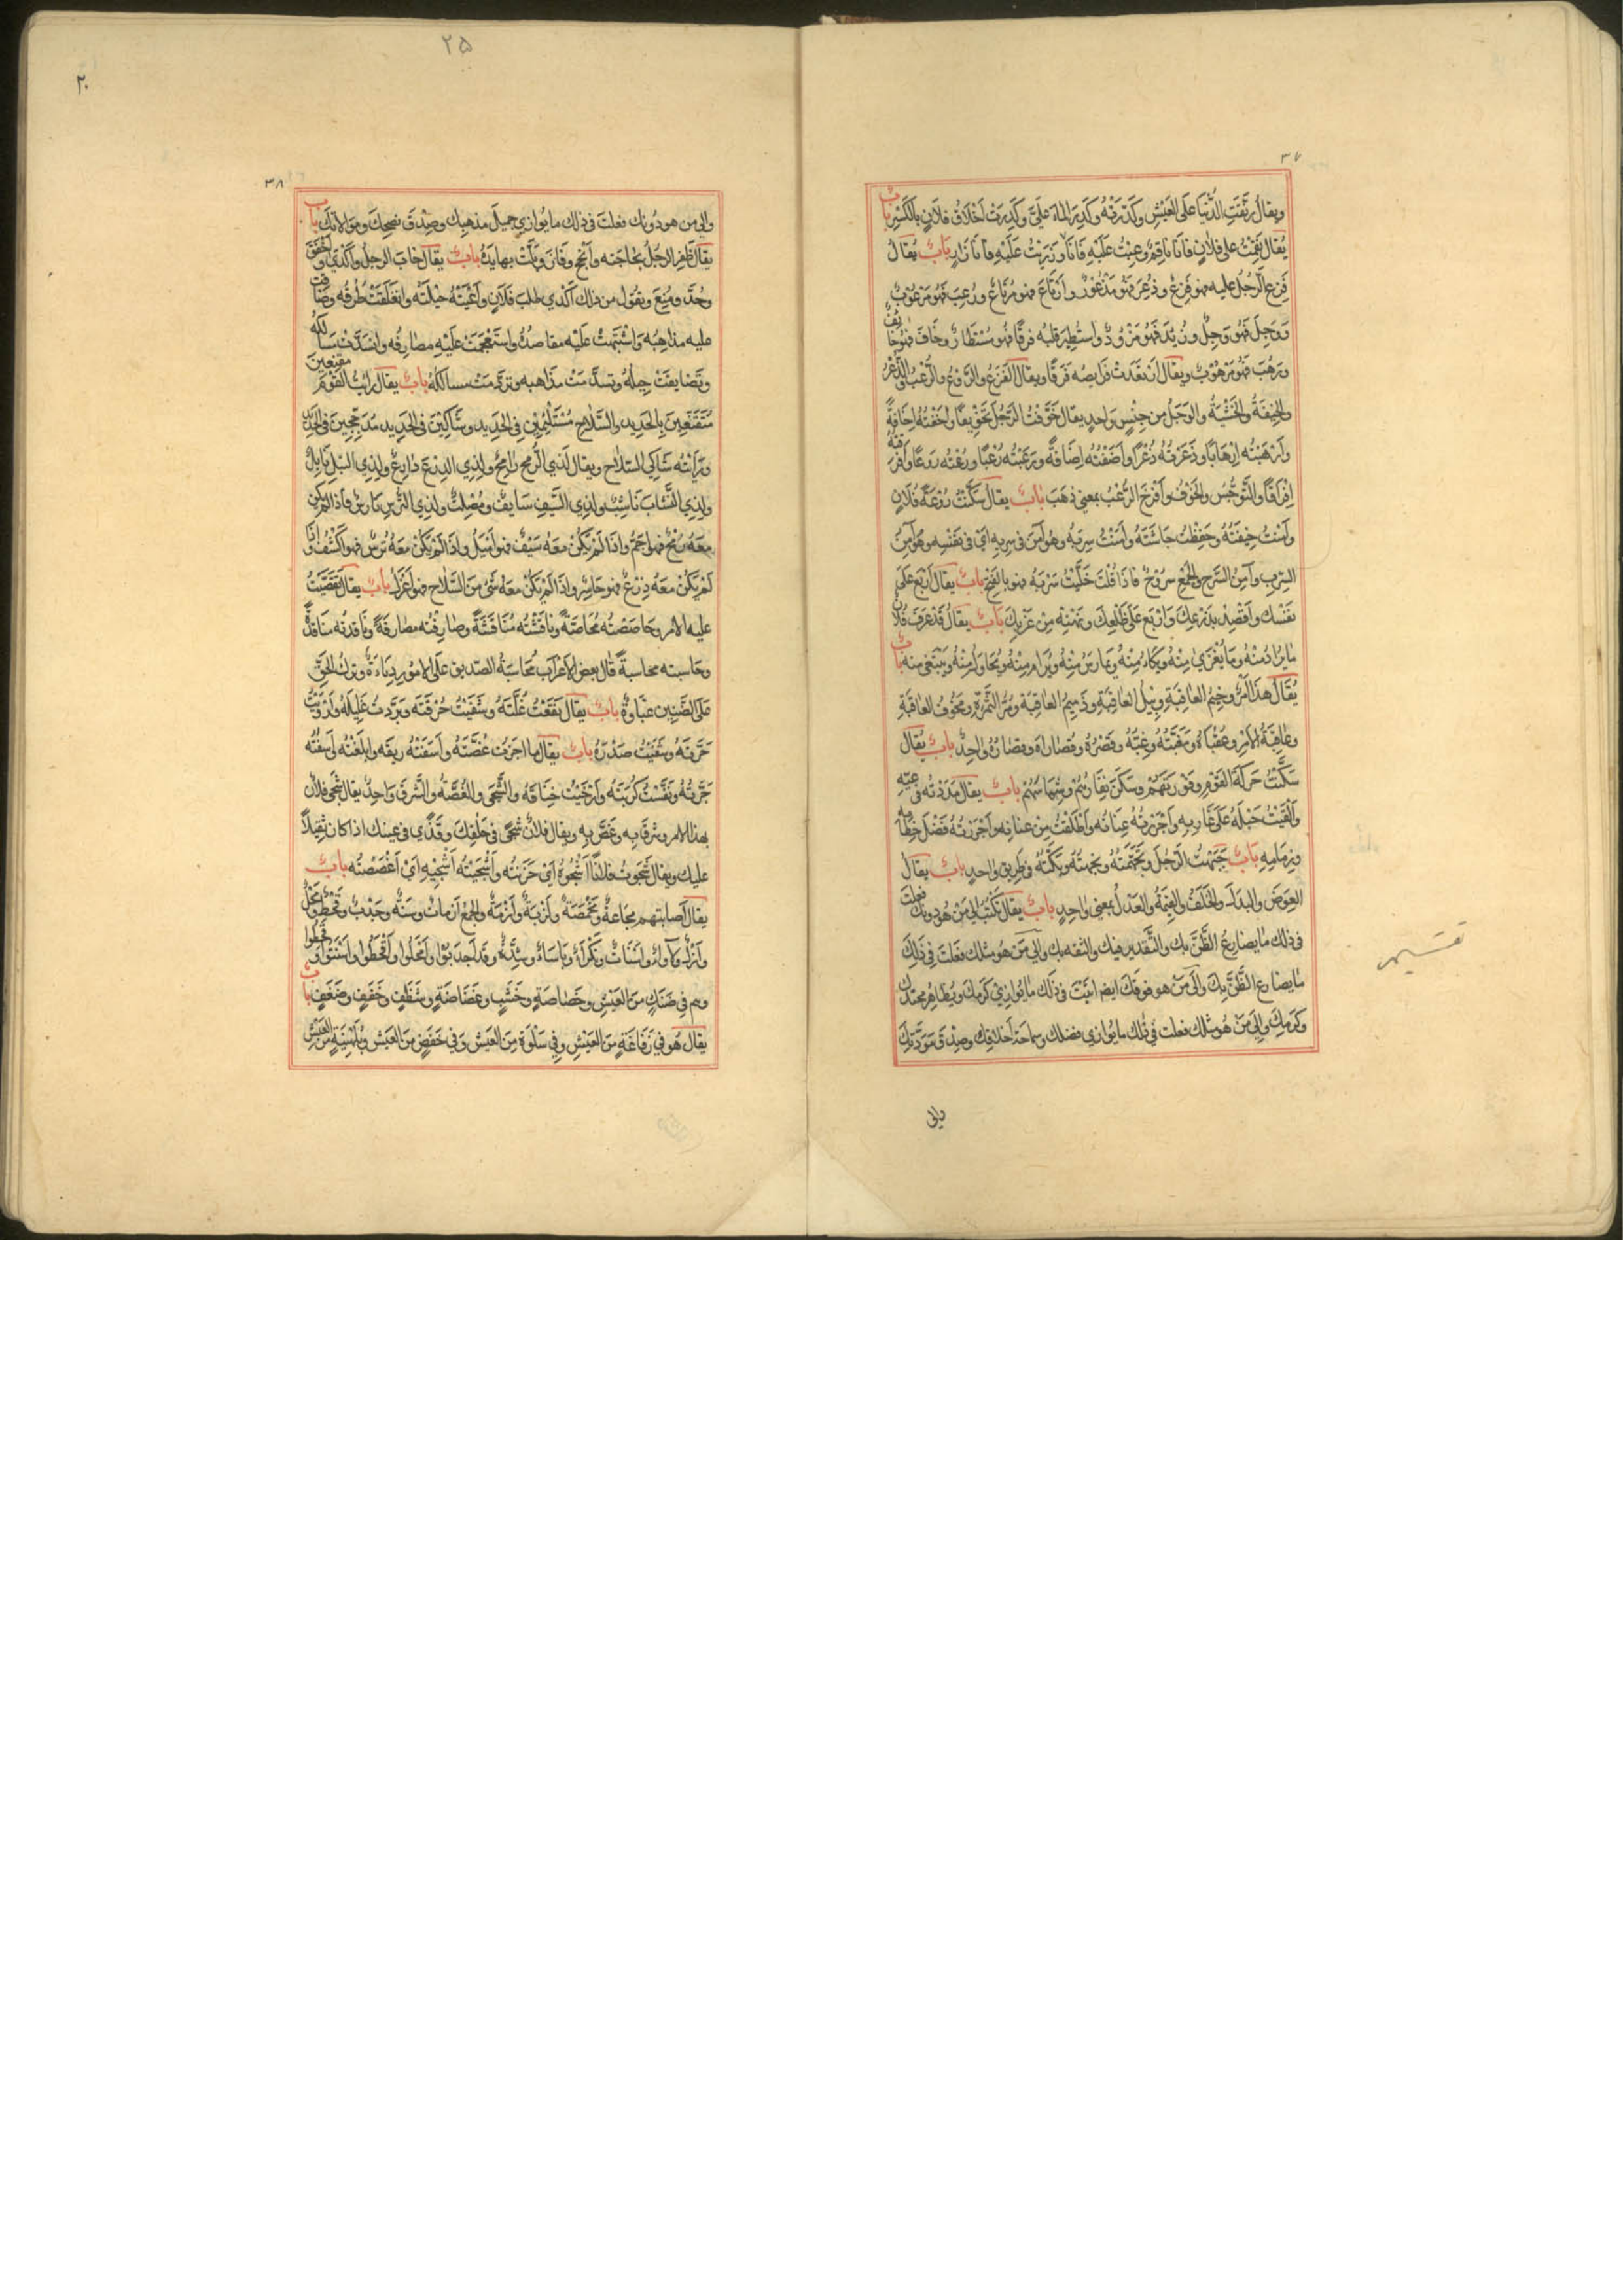 ٣٧
ويقال رَنَّقَتِ الدُّنْيَا عَلَى العَيْشِ وكَدَّرَتْهُ وكَدِرَ المَاءُ عَلَيَّ وكَدِرَتْ اَخْلَاقُ فلَانٍ بالكَسْرِ بابٌ
يُقال نَقِمْتُ على فلانٍ فانَا ناقِمٌ وعِبْتُ عَلَيْهِ فَانَا وَزَرَيْتُ عَلَيْهِ فانَا زَارٍ بَابٌ يُقالُ
فَزِعَ الرَّجُلُ عليه فهو فَزِعٌ وذُعِرَ فَهُوَ مَذْعُورٌ وارْتَاعَ فهو مُرْتَاعٌ ورُعِبَ فَهُوَ مَرْعُوْبٌ
وَوَجِلَ فَهُوَ وَجِلٌ وزُئِدَ فَهُوَ مَزْوُدٌ واستُطِيرَ قلبُه فرقًا فهُوَ مُسْتَطَارٌ وخَافَ فهُوَ خَائِفٌ
ورُهِبَ فهُوَ مَرْهُوْبٌ ويقال اِرْتَعَدَتْ فَرَايِصُه فَرَقًا ويقال الفَزَعُ والرَّوْعُ والرُّعْبُ والذُّعْرُ
والخِيفَةُ والخَشْيَةُ والوَجَلُ من جِنْسٍ وَاحِدٍ يقال خَوَّفْتُ الرَّجُلَ تَخْوِيفًا واَخَفْتُهُ اِخَافَةً
واَرْهَبْتُه اِرْهَابًا وذَعَرْتُهُ ذُعْرًا واَضَفْتُهُ اِضَافَةً ورَعَبْتُه رُعْبًا ورُعْتُه رَوعًا واَفْرَقْتُهُ
اِفْرَاقًا والتَّوَجُّسُ والخَوْفُ واَفْرَخَ الرُّعْبُ بمعنى ذهَبَ بابٌ يقالُ سَكَّنْتُ رُوْعَةَ فُلَانٍ
واٰنَسْتُ خِيفَتَهُ وخَفَّضْتُ جَاشَتَهُ واٰمَنْتُ سِربَهُ وهُوَ آمِنٌ فى سِربِهِ اَيْ فى نَفْسِه وهُوَ آمِنُ
السِّربِ وآمِنُ السَّرحِ والجَمْعُ سُرُوْحٌ فاذَا قُلتَ خَلَّيْتُ سَرْبَهُ فهو بالفَتْحِ بابٌ يقالُ اَرْبِعْ عَلَى
نَفْسِك واَقْصِدْ بذَرْعِكَ وَارْبَعْ عَلَى ظَلْعِكَ ونَهْنِهْ مِنْ غَرْبِكَ بَابٌ يقالُ قَدْ عَرَفَ فُلَانٌ
مَا يُرَادُ مِنْهُ وَمَا يُغْزَى مِنْهُ ويُكَادُ مِنْهُ ويمارسُ مِنْهُ ويُرَام مِنْهُ ويُحَاوَلُ مِنْهُ ويُبْتَغى منه بابٌ
يُقَالُ هذَا اَمْرٌ وخِيمُ العاقِبَةِ وَبِيْلُ العَاقِبَةِ وذَمِيمُ العَاقِبَة ومُرُّ الثَّمَرَةِ ومَخُوْفُ العَاقِبَةِ
وعَاقِبَةُ الأمْرِ وعُقْبَاهُ ومَغَبَّتُهُ وغِبُّهُ وقَصْرُهُ وقُصَارَاهُ وقصَارُهُ واحِدٌ بابٌ يُقال
سَكَّنْتُ حَرَكَةَ القَوْمِ وفَوْرَتَهُمْ وسَكَنَ نِفَارُهُمْ وشِمَاسُهُمْ بابٌ يقال مَدَدْتُه فى غَيِّهِ
واَلْقَيْتُ حَبْلَهُ عَلَى غَارِبِهِ واَجْرَرْتُهُ عِنَانَهُ واَطْلَقْتُ مِنْ عنانِهِ واَجْرَرْتُهُ فَضْلَ خِطَامِهِ
وزِمَامِهِ بَابٌ جَبَهْتُ الرَّجُلَ وتَجَهَّمْتُهُ ونَجَهْتُهُ وبَكَّتُّهُ فى طَرِيقٍ واحِدٍ بابٌ يقالُ
العِوَضُ والبَدَلُ والخَلَفُ والقِيْمَةُ والعَدْلُ بمعنىً واحِدٍ بابٌ يقال كتَبْتَ اِلى مَنْ هُو دونكَ فعلتَ
فى ذلك مَا يضارِعُ الظَّنَّ بك والتَّقْدِيرَ فيك والثقه بك والى مَنْ هو مثلك فعَلتَ فى ذَلِكَ
مَا يضَارِعُ الظَّنَّ بِكَ والَى مَنْ هو فوقَكَ ايضا اتيتَ فى ذلَك مَا يُوازِي كَرَمَكَ ويُظَاهِرُ محتدك
وكَرَمِكَ واِلَى مَنْ هُو مثلك فعلت فى ذٰلك ما يُوازي فضلك وسماحَةَ اَخلاقِكَ وصِدْقَ مَوَدَّتِكَ
والى
تقسيم
٢٥
٢٠
٣٨
والى من هو دُونك فعلتَ فى ذلك ما يُوازي جميلَ مذهبِك وصِدْقَ نصحِكَ ومُوالاتك بابٌ
يقال ظَفِرَ الرجُلُ بحَاجَتِه واَنْجَحَ وفَازَ بابٌ يقالُ خابَ الرجلُ واَكْدَى واَخْفَقَ
وحُدَّ ومُنِعَ ويقول من ذلك اَكْدَي طلبُ فلَانٍ واَعْيَتْهُ حِيْلَتُه وانغلَقَتْ طُرقُه وضَاقت
عليه مذاهِبُه وَاشْتَبَهَتْ عَلَيْه مقاصدُهُ واسْتَعْجَمَتْ عَلَيْهِ مصَارِفُه وانسَدَّتْ مَسَالكُهُ
وتَضَايقَتْ حِيلُهُ وتسدَّمَتْ مَذَاهبه وتردَّمَتْ مسالكُهُ بابٌ يقالُ رَايْتُ القَوْمَ مقنعِينَ
مُتَقَنِّعِينَ بِالحَدِيدِ والسَّلَاحِ مُسْتَلْئِمِيْنِ فِى الحَدِيدِ وشَاكِيْنَ فى الحَدِيد مُدَجَّجِينَ فى الحَدِيدِ
ورَأيْتُه شَاكِي السَّلَاحِ ويقالُ لذِي الرُّمحِ رَامِحٌ ولِذِي الدِرْعِ دارِعٌ ولِذِي النَّبْلِ نَابِلٌ
ولِذِي النَّشَّابِ نَاشِبٌ ولِذِي السَّيْفِ سَايفٌ ومُصْلِتٌ ولذِي التُّرْسِ تَارِسٌ فَاذَا لم يكن
معَهُ رُمْحٌ فهو اَجَمُّ واِذَا لَمْ يَكُنْ معَهُ سَيْفٌ فهو اَمْيَلُ واِذَا لَمْ يَكُنْ معَهُ تُرسٌ فهو اَكْشَفُ واِذَا
لَمْ يَكُنْ معَهُ دِرْعٌ فهو حَاسِرٌ واِذَا لَمْ يَكُنْ معَهُ شَىْءٌ مِنَ السَّلَاحِ فهو اَعْزَلُ بابٌ يقالَ تَقَصَّيْتُ
عليه الأمر وحَاصَصْتُه مُحَاصَّةً ونَاقَشْتُه مُنَاقَشَةً وصَارفْتُه مصَارفَةً ونَاقدتُه منَاقدَةً
وحَاسبته محاسبةً قال بعض الاَعْرَابِ مُحَاسَبَةُ الصَّدِيق عَلى الأمُورِ دَنَاءَةٌ وتركُ الحَقِّ
عَلَى الضَّنِينِ غبَاوةٌ بابٌ يقالُ نَقَعْتُ غُلَّتَهُ وشَفَيْتُ حُرْقَتَه وبَرَّدتُ غَلِيلَهُ واَرْوَيْتُ
حَرَّتَهُ وشَفَيْتُ صَدْرَهُ بابٌ يقال ما اَجَزْتُ غُصَّتَهُ واَسَغْتُهُ رِيقَه وابلَعْتُه
جَرَّتَهُ ونَفَّسْتُ كُرْبَتَهُ واَرْخَيْتُ خِنَاقَهُ والشَّجَى والغُصَّةُ والشَّرقُ وَاحِدٌ يقال شَجِيَ فلَانٌ
بهذا الامر وشرقَ بِهِ وغَصَّ بِهِ ويقال فلانٌ شَجًى فى حَلْقِكَ وقَذًى فى عينك اذا كان ثَقِيلًا
عليك ويقال شَجَوتُ فلانًا اَشْجُوْهُ اَيْ حَزَنْتُه واَشْجَيْتُه اُشْجِيْهِ اَيْ اَغْصَصْتُه بابٌ
يقالُ اَصابتهم مَجَاعَةٌ ومَخْمَصَةٌ واَزْبَةٌ واَزْمَةٌ والجمْعُ اَزَمَاتٌ وسَنَةٌ وجَدْبٌ وقَحْطٌ ومَحْلٌ
واَزْلٌ ولَأوَاءُ واسْنَاتٌ ونَكْرَاءُ وبَاسَاءُ وشِدَّةٌ وقَد اَجدَبُوْا واَمْحَلُوا واَقْحَطُوا واَسْنَتُوا وقحطوا
وهم فى ضَنَكٍ مِنَ العَيْشِ وخَصَاصَةٍ وخَشَبٍ وغَضَاضَةٍ وشَظَفٍ وحَفَفٍ وضَعَفٍ بابٌ
يقال هُوَ فى رَفَاغَةٍ مِنَ العَيْشِ وفِى سَلْوَةٍ مِنَ العَيْش وَفى خَفَضٍ مِنَ العَيْش وبُلَهْنِيَةٍ مِنَ العَيْشِ